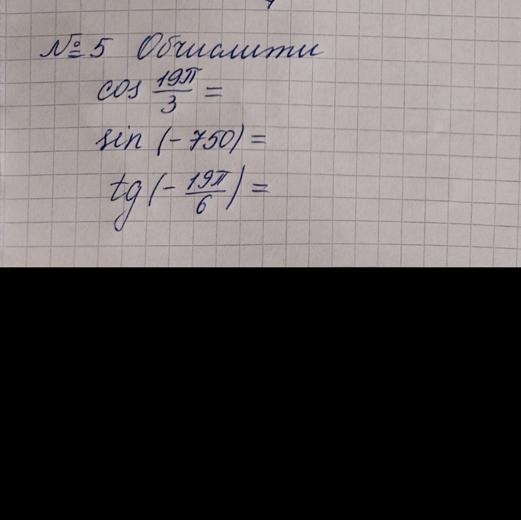 №5 Обчислити
cos 19π/3 =
sin (-750) =
tg (- 19π/6) =